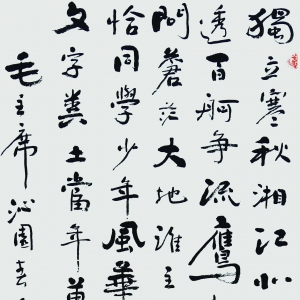 獨立寒秋湘江北
透百舸争流鷹
問蒼茫大地誰主
恰同學少年風華
文字糞土當年萬
毛主席沁園春